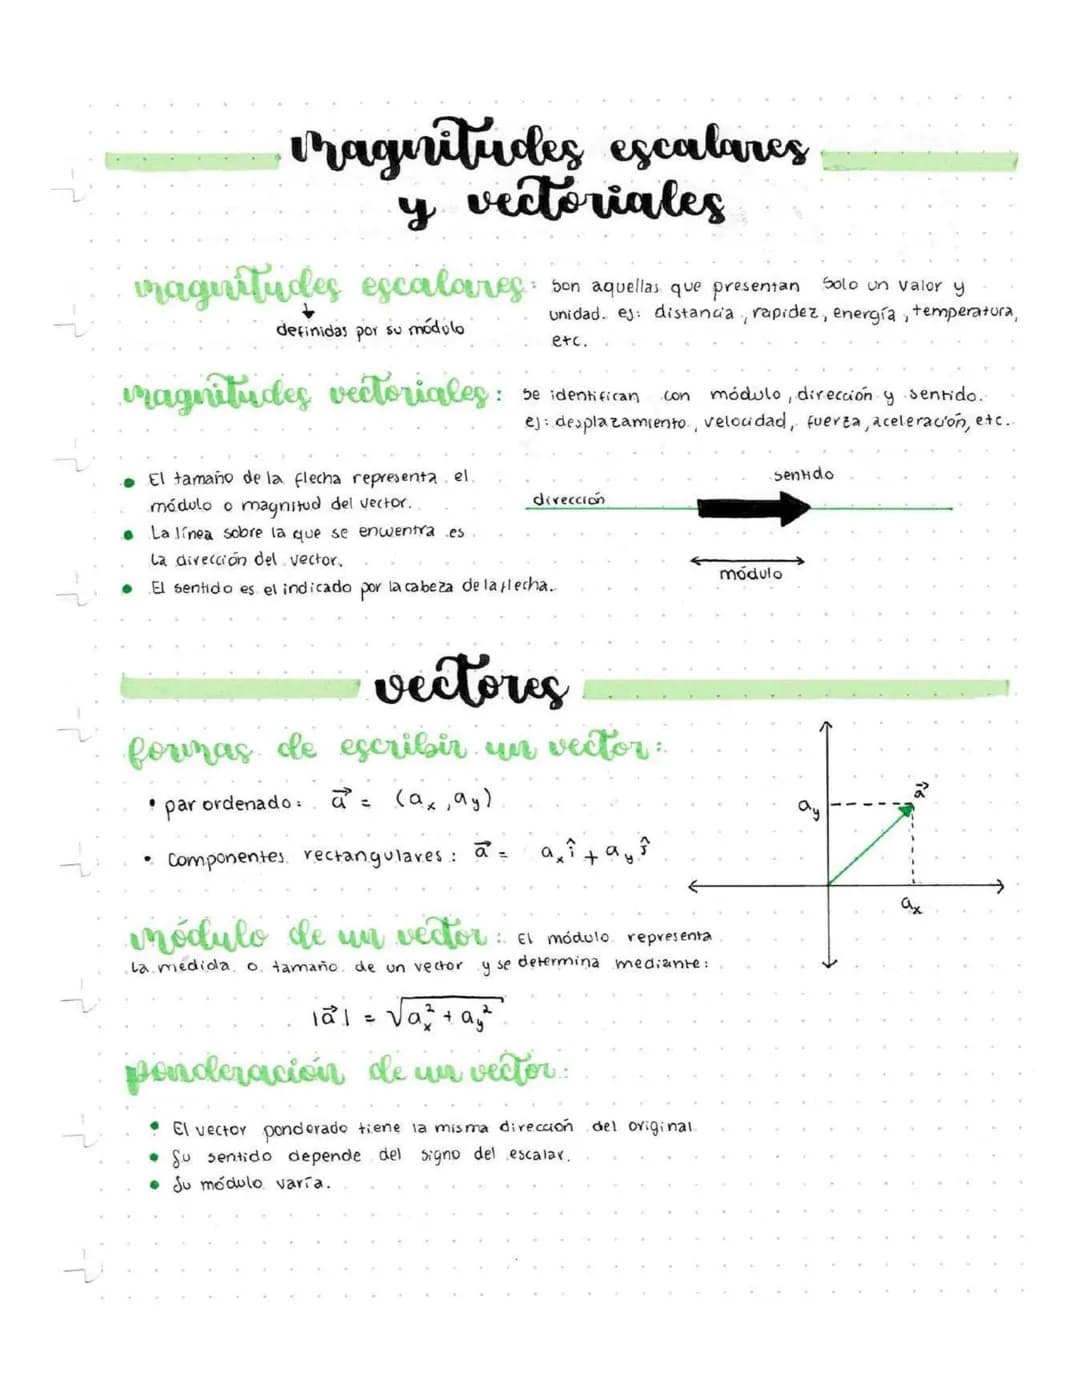 magnitudes escalares
y vectoriales
magnitudes escalares: Son aquellas que presentan solo un valor y
definidas por su módulo
unidad. ej: distancia, rapidez, energía, temperatura,
etc.
magnitudes vectoriales: Se identifican con módulo, dirección y sentido.
ej: desplazamiento, velocidad, fuerza, aceleración, etc.
• El tamaño de la flecha representa el
módulo o magnitud del vector.
• La línea sobre la que se encuentra es
la dirección del vector.
• El sentido es el indicado por la cabeza de la flecha.
sentido
dirección
módulo
vectores
formas de escribir un vector:
• par ordenado: a⃗ = (aₓ, a_y)
• Componentes rectangulares: a⃗ = aₓî + a_yĵ
a⃗
a_y
aₓ
módulo de un vector: El módulo representa
la medida o tamaño de un vector y se determina mediante:
|a⃗| = √(aₓ² + a_y²)
ponderación de un vector:
• El vector ponderado tiene la misma dirección del original.
• Su sentido depende del signo del escalar.
• Su módulo varía.